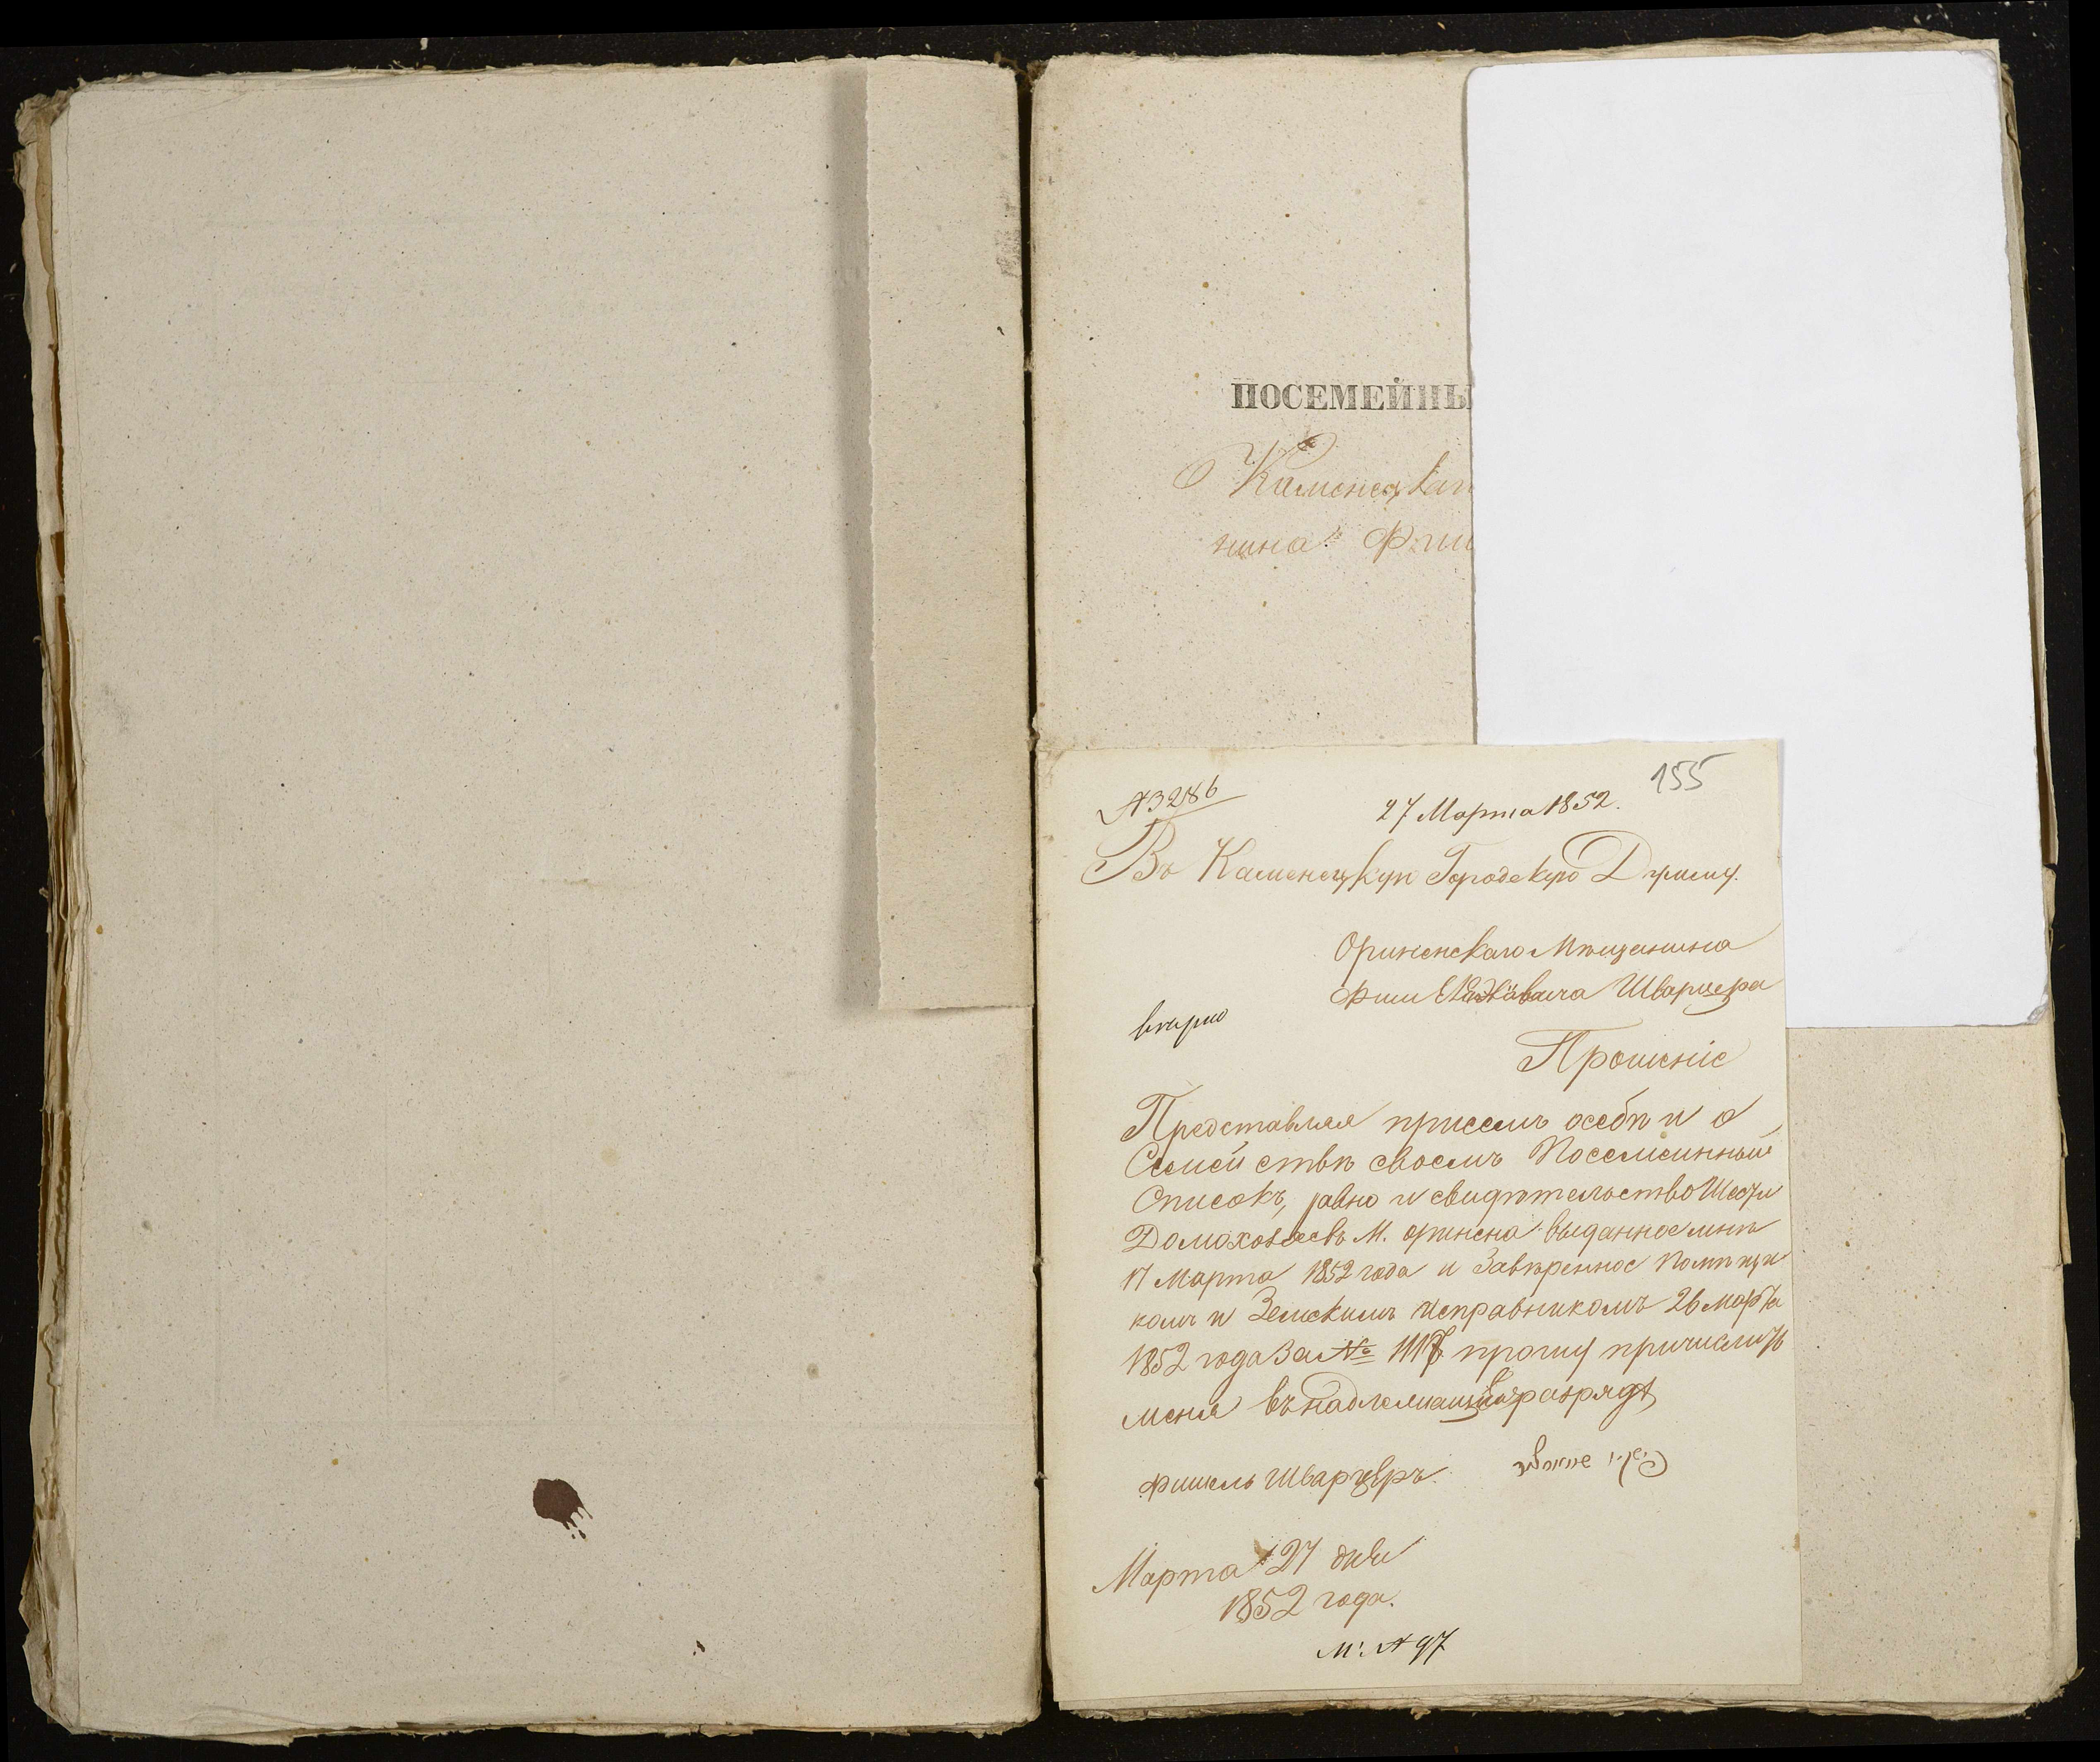 ПОСЕМЕЙНЫ
Каменецкаг
нина Фиш
155
№ 3286
27 Марта 1852.
Въ Каменецкую Городскую Думу.
Ориненскаго Мѣщанина
Шварцера
вѣрно
Прошеніе
Представляя присемъ особѣ и о
Семействѣ своемъ Посемеинный
Списокъ, равно и свидѣтельство Шести
Домохозяевъ М. Оринена выданное мнѣ
17 Марта 1852 года и Завѣренное Помѣщи
комъ и Земскимъ Исправникомъ 26 Марта
1852 года За № прошу причислить
меня въ надлежащій разрядъ
Фишель Шварцеръ.
Марта 27 дня
1852 года.
М: № 97